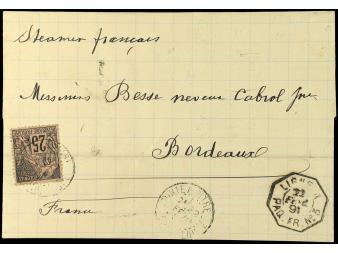 Steamer français
Messieurs Besse neveux Cabrol jne
Bordeaux
France
25
LIGNE
22
91
PAQ. FR. Nº 5